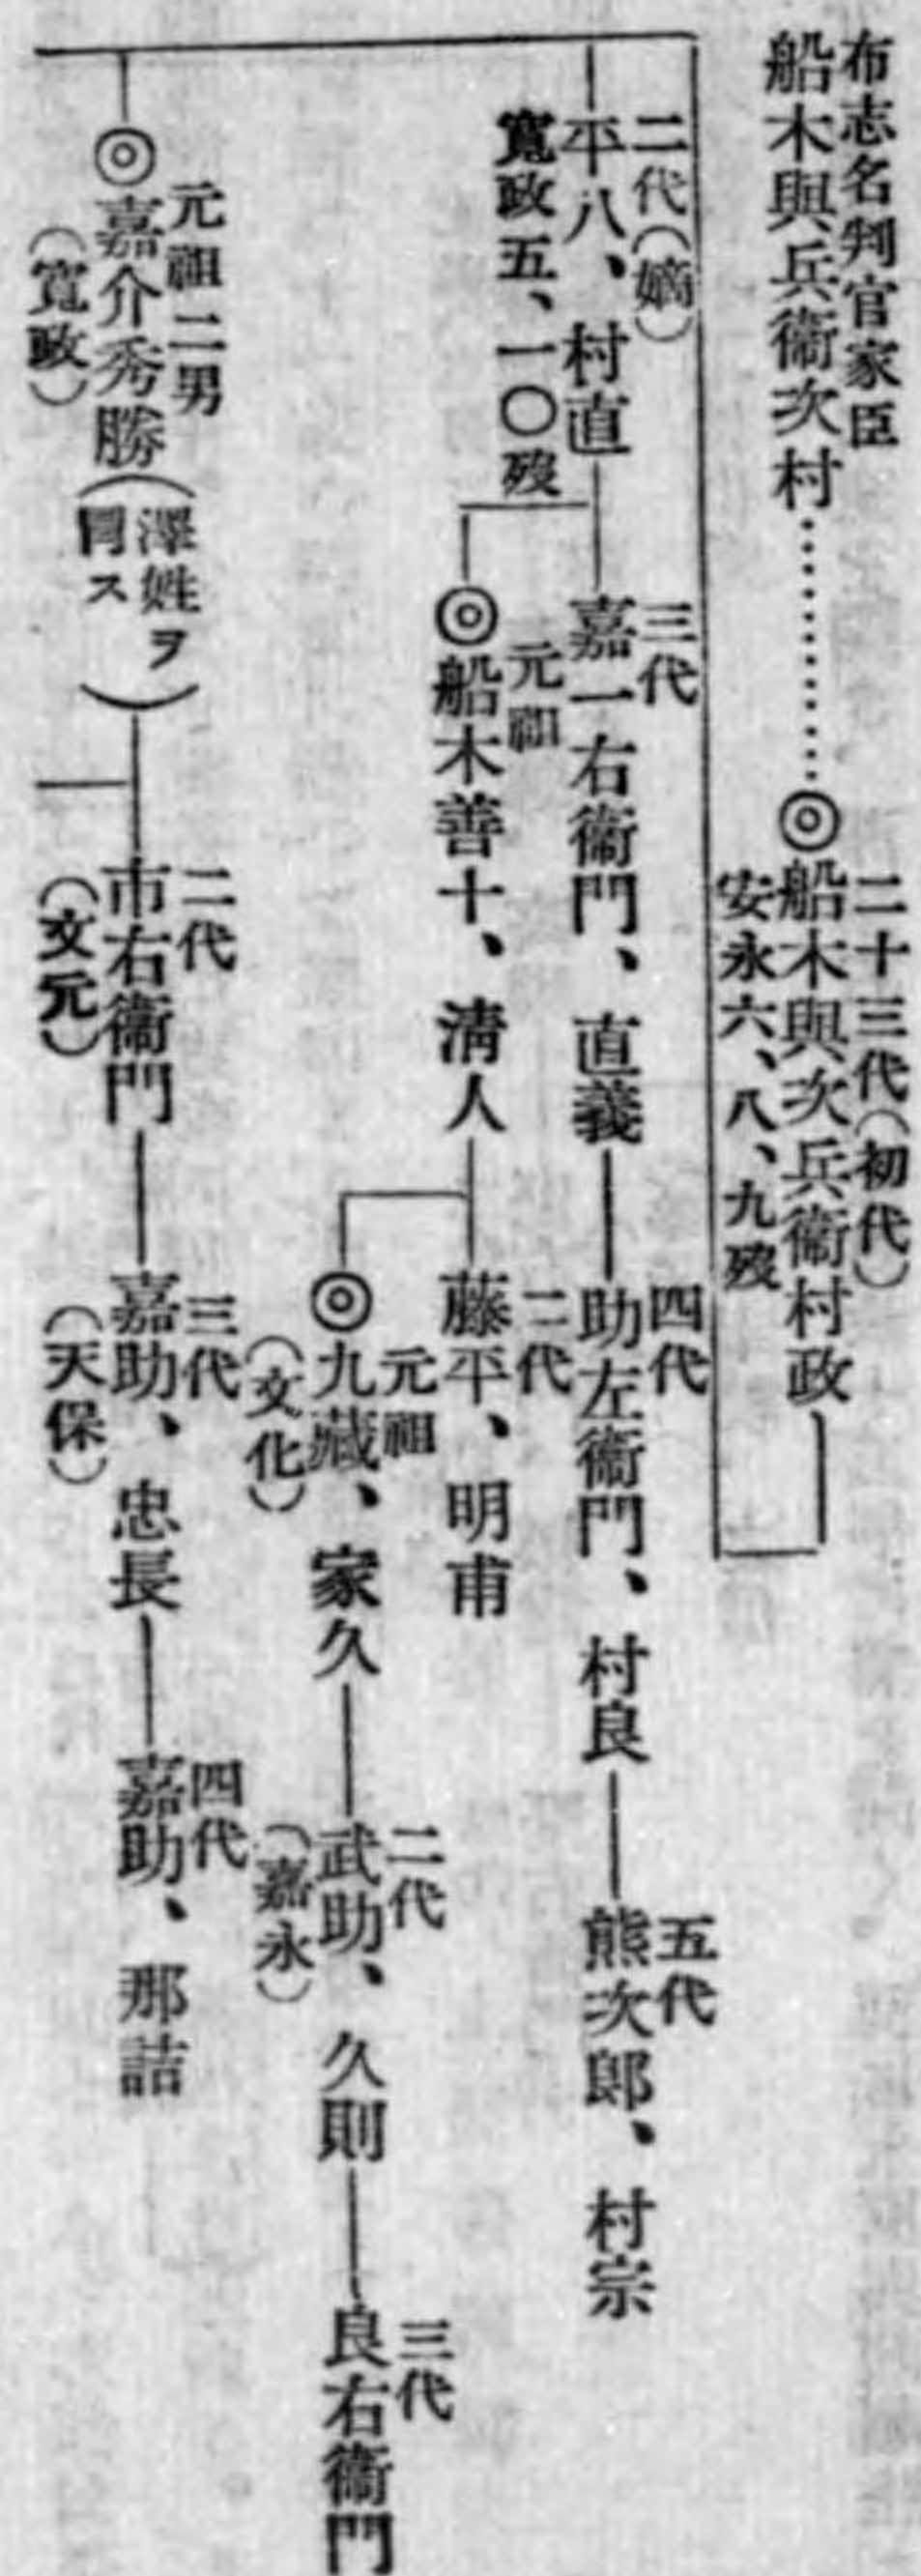 布志名判官家臣
船木與兵衞次村
二十三代(初代)
◎船木與次兵衞村政
安永六、八、九歿
二代(嫡)
平八、村直
寬政五、一〇歿
三代
嘉一右衞門、直義
四代
助左衞門、村良
五代
熊次郎、村宗
元祖
◎船木善十、淸人
二代
藤平、明甫
元祖
◎九藏、家久
(文化)
二代
武助、久則
(嘉永)
三代
良右衞門
元祖二男
◎嘉介秀勝(澤姓ヲ
冐ス)
(寬政)
二代
市右衞門
(文元)
三代
嘉助、忠長
(天保)
四代
嘉助、那詰